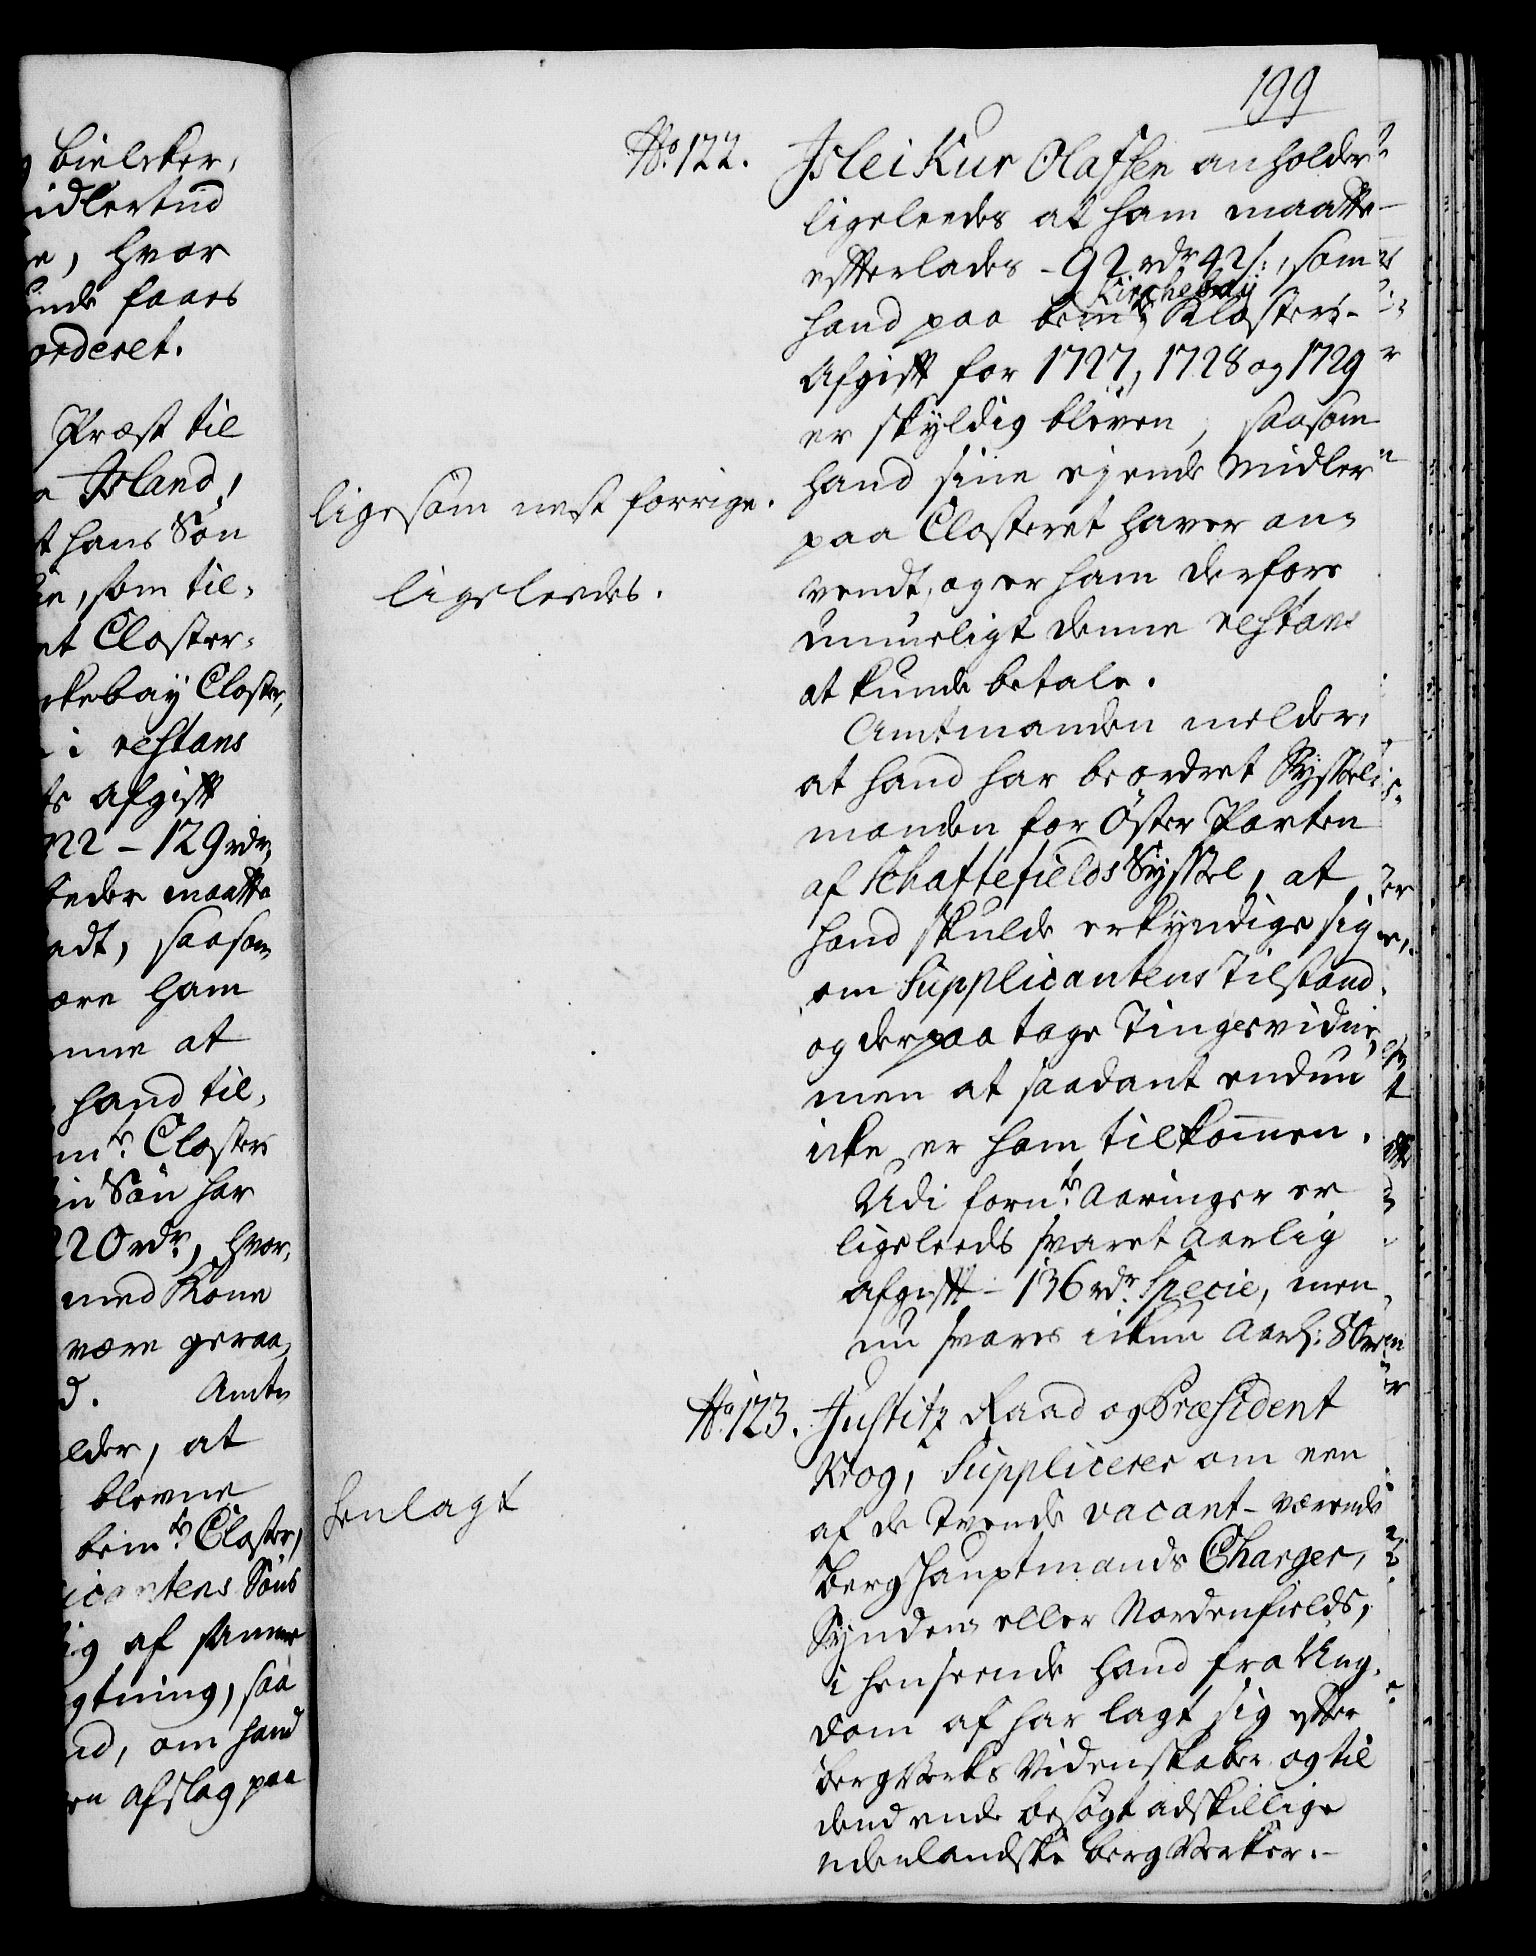 bielcker,
idlertid
e, hvor
inde faaes
orderet.
Præst til
Island,
t hans Søn
ie, som til-
et Closter-
ckebay Closter,
i restans
ts afgift
722 - 129 rdr,
beder maatte
adt, saasom
være ham
enne at
hand til-
mte Closters
in Søn har
220 rdr, hvor-
med Kone
være geraa-
d. Amt-
lder, at
blevne
bemte Closter,
icantens Søns
ig af samme
gtning, saa
nd, om hand
en afslag paa
199
No. 122. Isleikur Olafsen anholder
ligeleedes at ham maatte
efterlades - 92 rdr 42 s:, som
Kirchebay
hand paa bemte Klosters-
Afgift for 1727, 1728 og 1729
er skyldig bleven, saasom
hand sine ejende Midler
paa Closteret haver an-
vendt, og er ham derfore
umueligt denne restans
at kunde betale.
ligesom nest forrige.
ligeleedes.
Amtmanden melder,
at hand har beordret Syssel-
manden for Øster Parten
af Schaftefields Syssel, at
hand skulde erkyndige sig
om Supplicantens Tilstand
og derpaa tage Tingsvidne,
men at saadant endnu
icke er ham tilkommen.
Udi fornte Aaringer er
ligeleeds svaret Aarlig
Afgift - 136 rdr Specie, men
nu svares ickun Aarl: 80 rdr
No. 123. Justitz Raad og Præsident
Krog, Supplicerer om een
af de Tvende vacant-værende
Berghauptmands Charger,
Synden- eller Nordenfields,
i henseende hand fra Ung-
dom af har lagt sig efter
BergVerks Videnskaber og til
dend ende besøgt adskillige
udenlandske BergVerker.-
henlagt